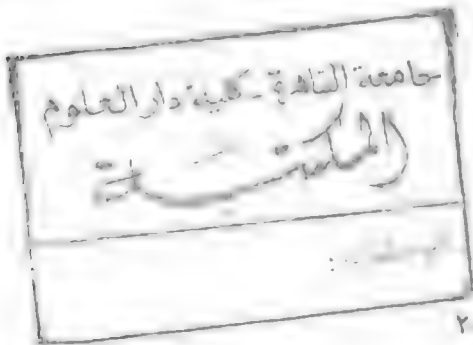 جامعة القاهرة - كلية دار العلوم
المكتبة
٢